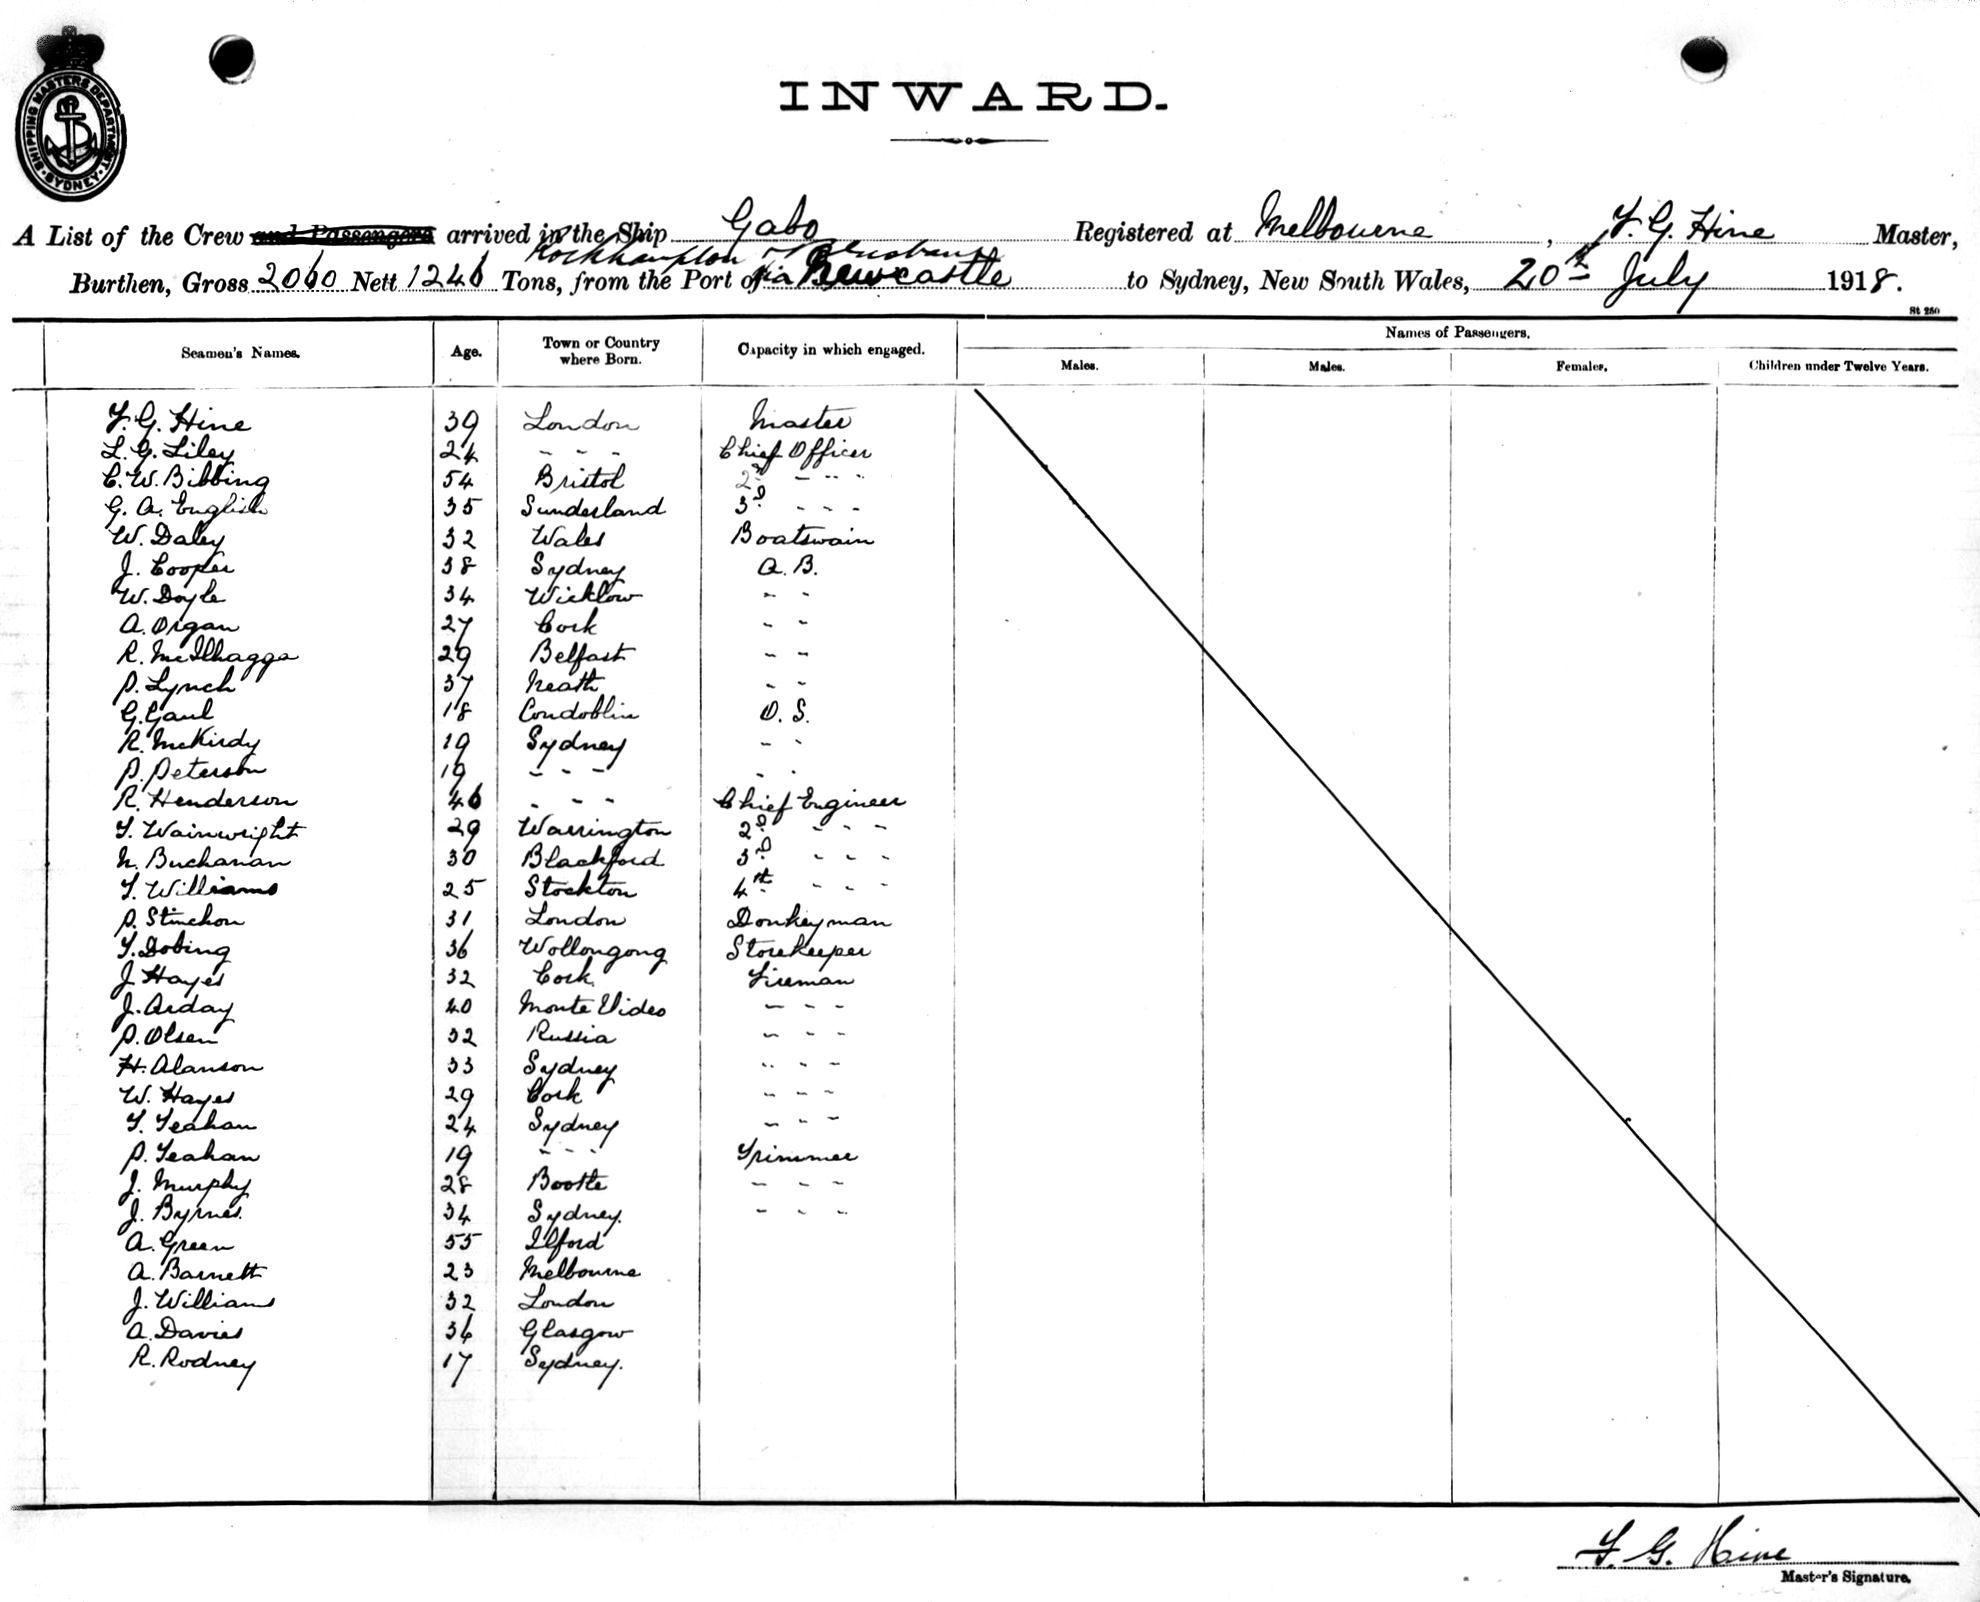 SHIPPING MASTERS DEPARTMENT
SYDNEY
INWARD.
A List of the Crew and Passengers arrived in the Ship Gabo Registered at Melbourne, F. G. Hine Master,
Rockhampton & Brisbane
Burthen, Gross 2060 Nett 1246 Tons, from the Port of via Newcastle to Sydney, New South Wales, 20th July 1918.
St 250
Seamen's Names. Age. Town or Country where Born. Capacity in which engaged. Names of Passengers.
Males. Males. Females. Children under Twelve Years.
F. G. Hine 39 London Master
L. G. Liley 24 - - - Chief Officer
C. W. Bibbing 54 Bristol 2nd - - -
G. A. English 35 Sunderland 3d - - -
W. Daley 32 Wales Boatswain
J. Cooper 38 Sydney A. B.
W. Doyle 34 Wicklow - -
A. Organ 27 Cork - -
R. McIlhagga 29 Belfast - -
P. Lynch 37 Neath - -
G. Gaul 18 Condoblin O. S.
R. McKirdy 19 Sydney - -
P. Peterson 19 - - - - -
R. Henderson 46 - - - Chief Engineer
T. Wainwright 29 Warrington 2d - - -
N. Buchanan 30 Blackford 3d - - -
T. Williams 25 Stockton 4th - - -
P. Stinchon 31 London Donkeyman
T. Dobing 36 Wollongong Storekeeper
J. Hayes 32 Cork. Fireman
J. Arday 40 Monte Video - - -
P. Olsen 32 Russia - - -
H. Alanson 33 Sydney - - -
W. Hayes 29 Cork - - -
T. Feahan 24 Sydney - - -
P. Feahan 19 - - - Trimmer
J. Murphy 28 Bootle - - -
J. Byrnes. 34 Sydney. - - -
A. Green 55 Ilford
A. Barnett 23 Melbourne
J. Williams 32 London
A. Davies 36 Glasgow
R. Rodney 17 Sydney.
F. G. Hine
Master's Signature.